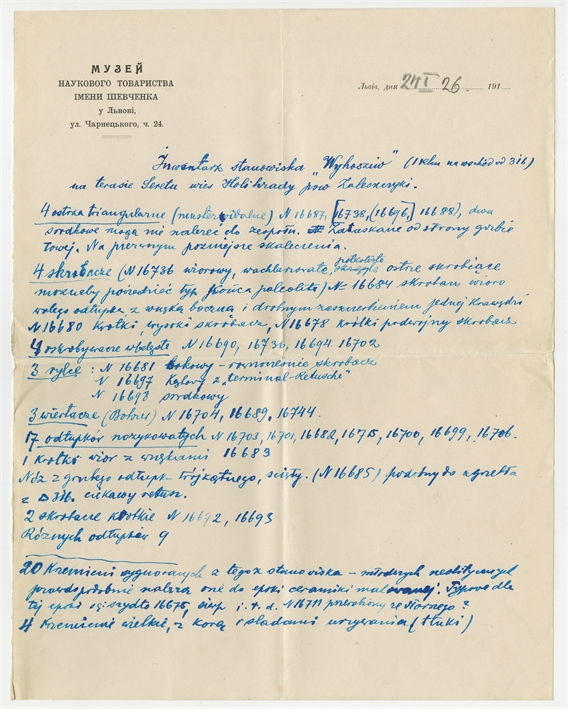 МУЗЕЙ
НАУКОВОГО ТОВАРИСТВА
ІМЕНИ ШЕВЧЕНКА
у Львові,
ул. Чарнецького, ч. 24.
Львів, дня 24 I 26. 191
Inwentarz stanowiska „Wyhoszів” (1 klm na wschód od
na terasie Seretu wieś Holihrady pow Zaleszczyki.
4 ostrza triangularne N 16687, [16738, (16696,] 16688), dwa
środkowe mogą nie należeć do zespołu. Załuskane od strony
towej. Na pierwszym późniejsze skaleczenia.
4 skrobacze (N 16736 wiorowy, wachlarzowate, ostrze skrobiące
możnaby pośredni typ końca paleolitu) N 16684 skrobacz
z wązką boczną i drobnym jednej krawędzi
N 16680 krótki wysoki skrobacz, N 16678 krótki podwójny skrobacz
4 N 16690, 16730, 16694 16702
3 rylce : N 16681 bokowy – skrobacz
N 16697 z „terminal-Retusche”
N 16698 środkowy
3 wiertacze (Bohrer) N 16704, 16689, 16744.
17 odłupków nożykowatych N 16703, 16701, 16682, 16715, 16700, 16699, 16706.
1 krótki wiór z wnękami 16683
Nóż z grubego odłupka trójkątnego, ścięty. (N 16685) podobny do
z ciekawy retusz.
2 skrobacze krótkie N 16692, 16693
Różnych odłupków 9
20 Krzemieni z tegoż stanowiska – młodszych neolitycznych
prawdopodobnie należą one do epoki ceramiki malowanej. Typowe dla
tej epoki są: szydło 16675, sierp i. t. d. N 16711 przerobiony
4 Krzemienie wielkie, z korą i śladami używania (tłuki)